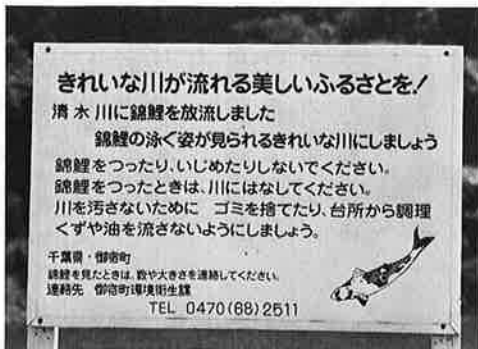 きれいな川が流れる美しいふるさとを!
清水川に錦鯉を放流しました
錦鯉の泳ぐ姿が見られるきれいな川にしましょう
錦鯉をつったり、いじめたりしないでください。
錦鯉をつったときは、川にはなしてください。
川を汚さないために ゴミを捨てたり、台所から調理
くずや油を流さないようにしましょう。
千葉県・御宿町
錦鯉を見たときは、数や大きさを連絡してください。
連絡先 御宿町環境衛生課
TEL 0470(68)2511